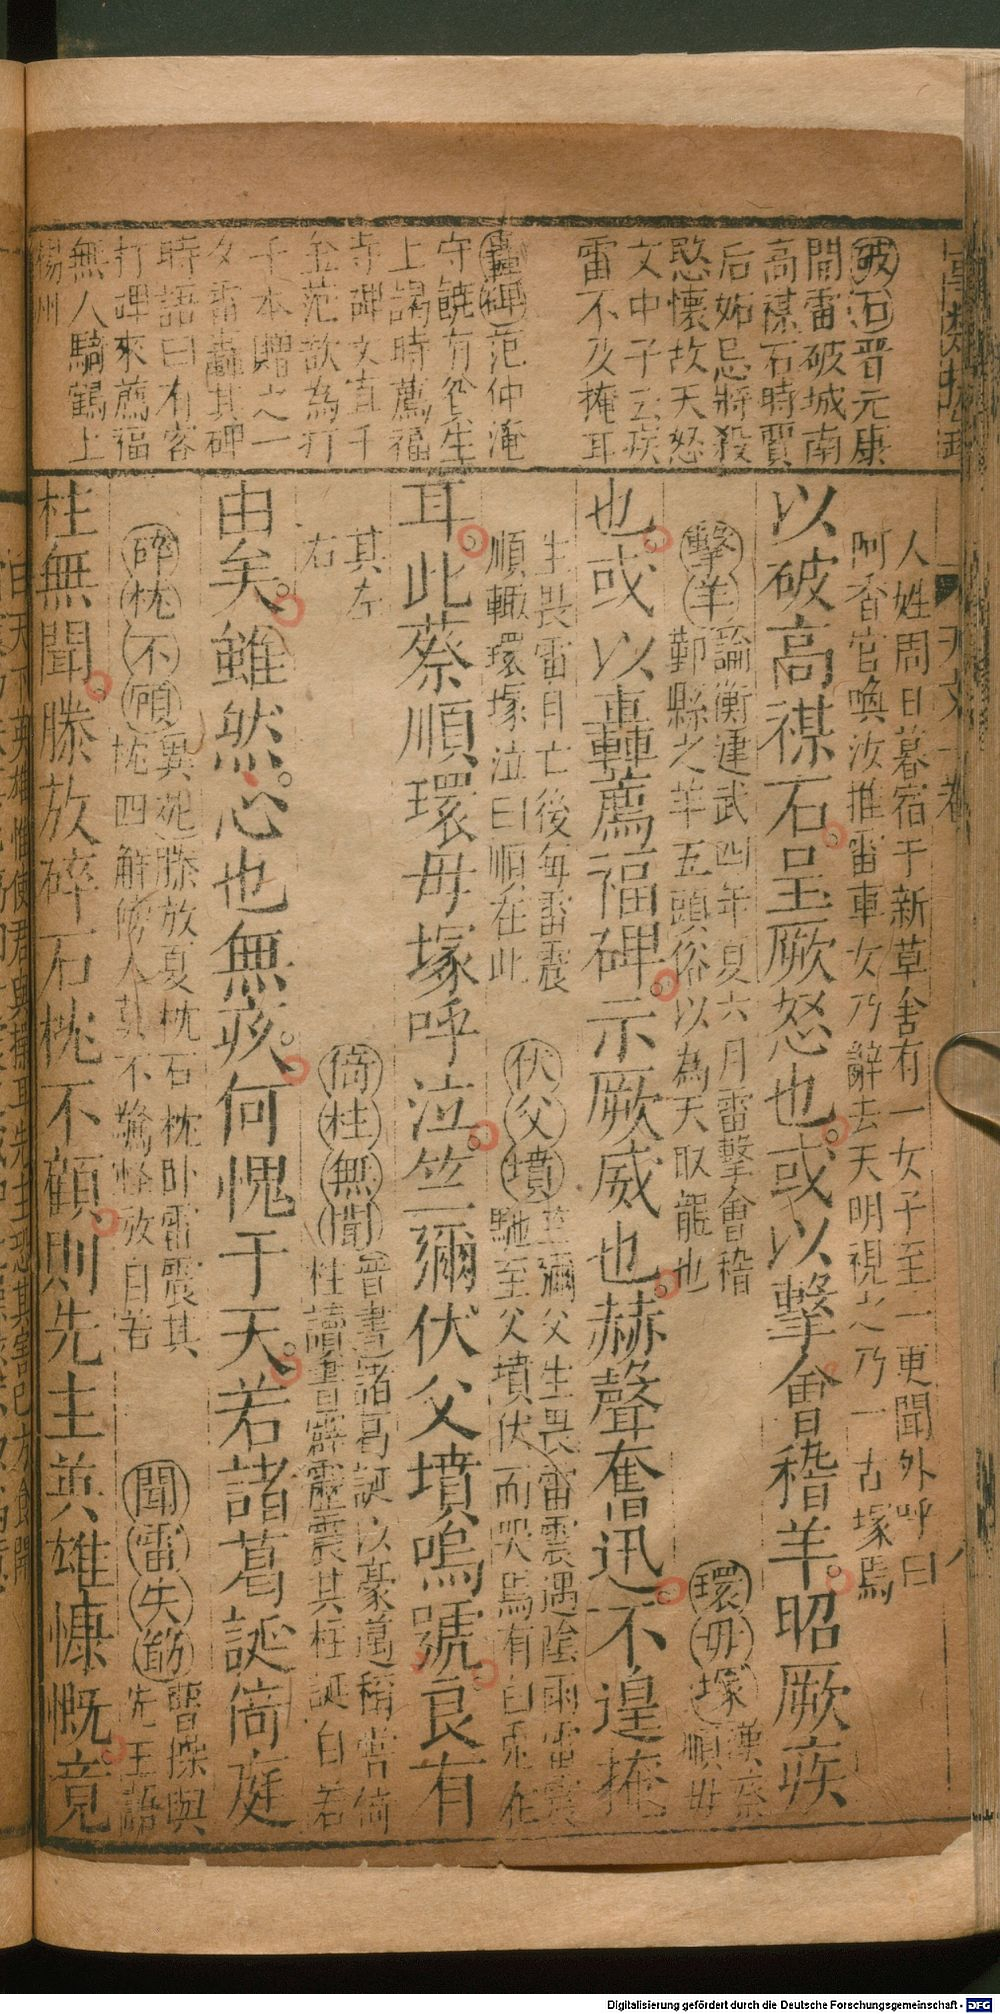 破石晉元康
閒雷破城南
高禖石時賈
后妬忌將殺
愍懷故天怒
文中子云疾
雷不及掩耳
轟碑范仲淹
守饒有爸生
上謁時薦福
寺碑文直千
金范欲為打
千本贈之一
夕雷轟其碑
時語曰有客
打碑來薦福
無人騎鶴上
揚州
天文一卷
人姓周日暮宿于新草舍有一女子至一更聞外呼曰
阿香官喚汝推雷車女乃辭去天明視之乃一古塚焉
以破高禖石呈厥怒也或以擊會稽羊昭厥疾
擊羊論衡建武四年夏六月雷擊會稽
鄞縣之羊五頭俗以為天取龍也
環毋塚漢蔡
順毋
也或以轟薦福碑示厥威也赫聲奮迅不遑掩
生畏雷自亡後每雷震
順輙環塚泣曰順在此
伏父墳竺彌父生畏雷雲遇陰雨雷震
馳至父墳伏而哭焉有白兎在
耳此蔡順環毋塚呼泣竺彌伏父墳嗚號良有
其左
右
倚柱無聞晉書諸葛誕以豪邁稱嘗倚
柱讀書霹靂震其柱誕自若
由矣雖然心也無疚何愧于天若諸葛誕倚庭
碎枕不顧異苑滕放夏枕石枕卧雷震其
枕四解傍人莫不驚怪放自若
聞雷失筯曹操與
先主語
柱無聞滕放碎石枕不顧則先主英雄慷慨竟
Digitalisierung gefördert durch die Deutsche Forschungsgemeinschaft - DFG